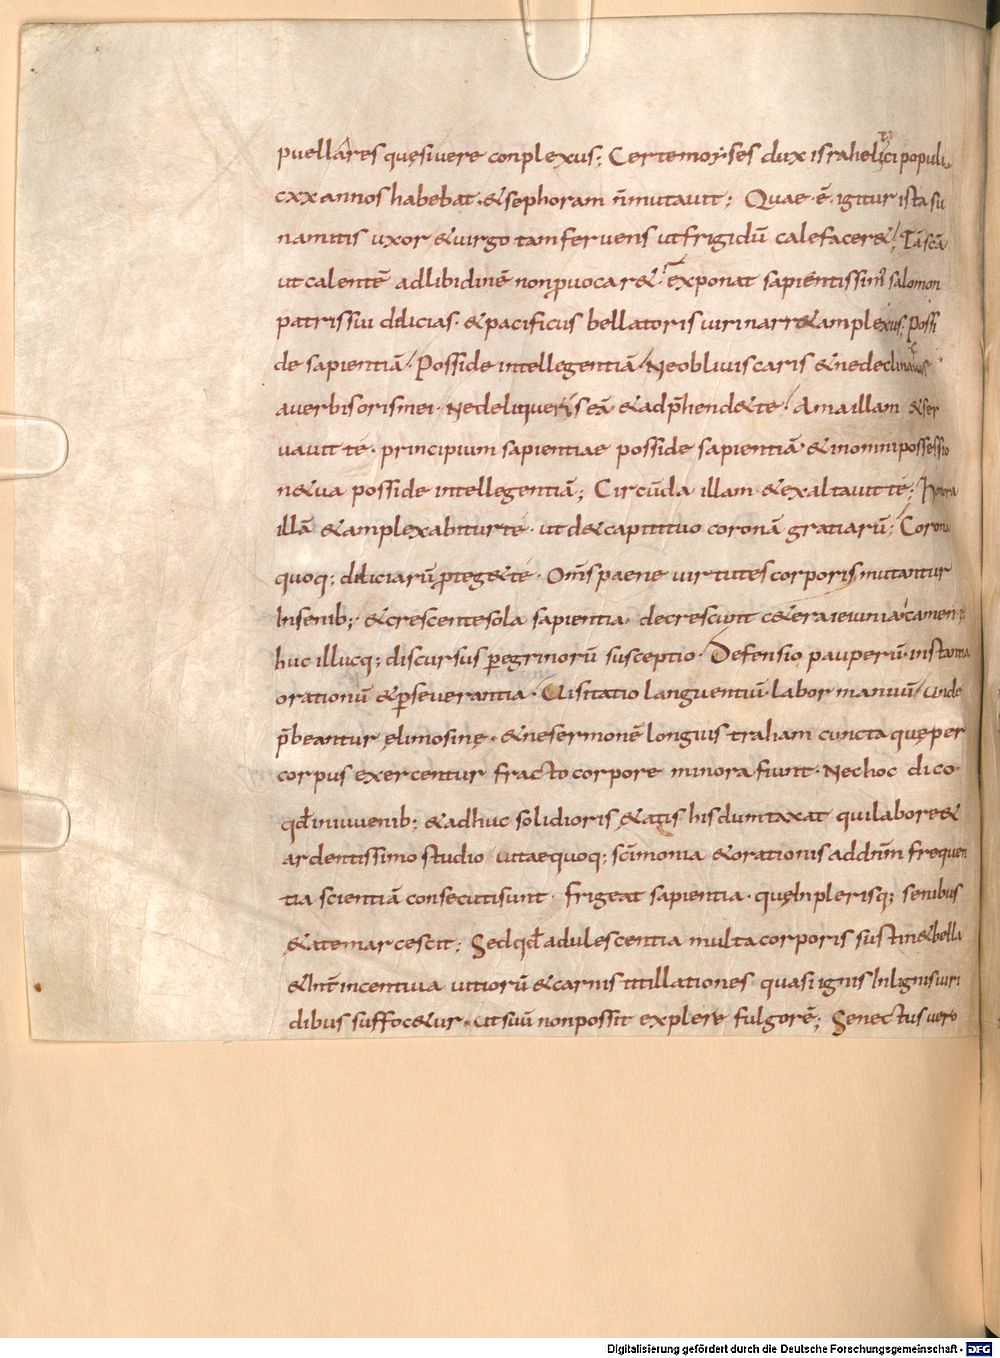 puellares quęsiuere conplexus; Certe moyses dux israhelitici populi
cxx annos habebat · & sephoram n̄ mutauit; Quae · ē · igitur ista su
namitis uxor & uirgo tam feruens ut frigidū calefacer&/ Tā sc̄a
ut calentē ad libidinē non ꝓuocar& · exponat sapientissim᾽ salomon
patris sui dilicias · & pacificus bellatoris uiri narr& amplexus; Possi
de sapientiā/ Posside intellegentiā/ Ne obliuiscaris & ne declinaueris
a uerbis oris mei · Ne deliqueris eā & adp̄hend& te/ Ama illam & ser
uauit te · principium sapientiae posside sapientiā & in omni possessio
n& ua posside intellegentiā; Circūda illam & exaltauit te; Honora
illā & amplexabitur te · ut d& capiti tuo coronā gratiarū; Corona
quoq; diliciarū ꝓteg& te · Om̄s paene uirtutes corporis mutantur
In senib; · & crescente sola sapientia · decrescunt c&era ieiunia · cameu
huc illucq; discursus ꝑegrinorū susceptio · Defensio pauperū · instantia
orationū & ꝑseuerantia · Uisitatio languentiū · labor manuū/ unde
p̄beantur elimosinę · & ne sermonē longius traham cuncta quę per
corpus exercentur fracto corpore minora fiunt · Nec hoc dico ·
qđ in iuuenib; & adhuc solidioris &atis his dumtaxat qui labore &
ardentissimo studio uitae quoq; sc̄imonia & orationis ad dn̄m frequen
tia scientiā consecuti sunt · frigeat sapientia · quę In plerisq; senibus
&ate marcescit; Sed qđ adulescentia multa corporis sustin& bella
& Int̄ incentiua uitiorū & carnis titillationes quasi ignis In lignis uiri
dibus suffoc&ur · ut suū non possit explere fulgorē; Senectus uero
Digitalisierung gefördert durch die Deutsche Forschungsgemeinschaft - DFG